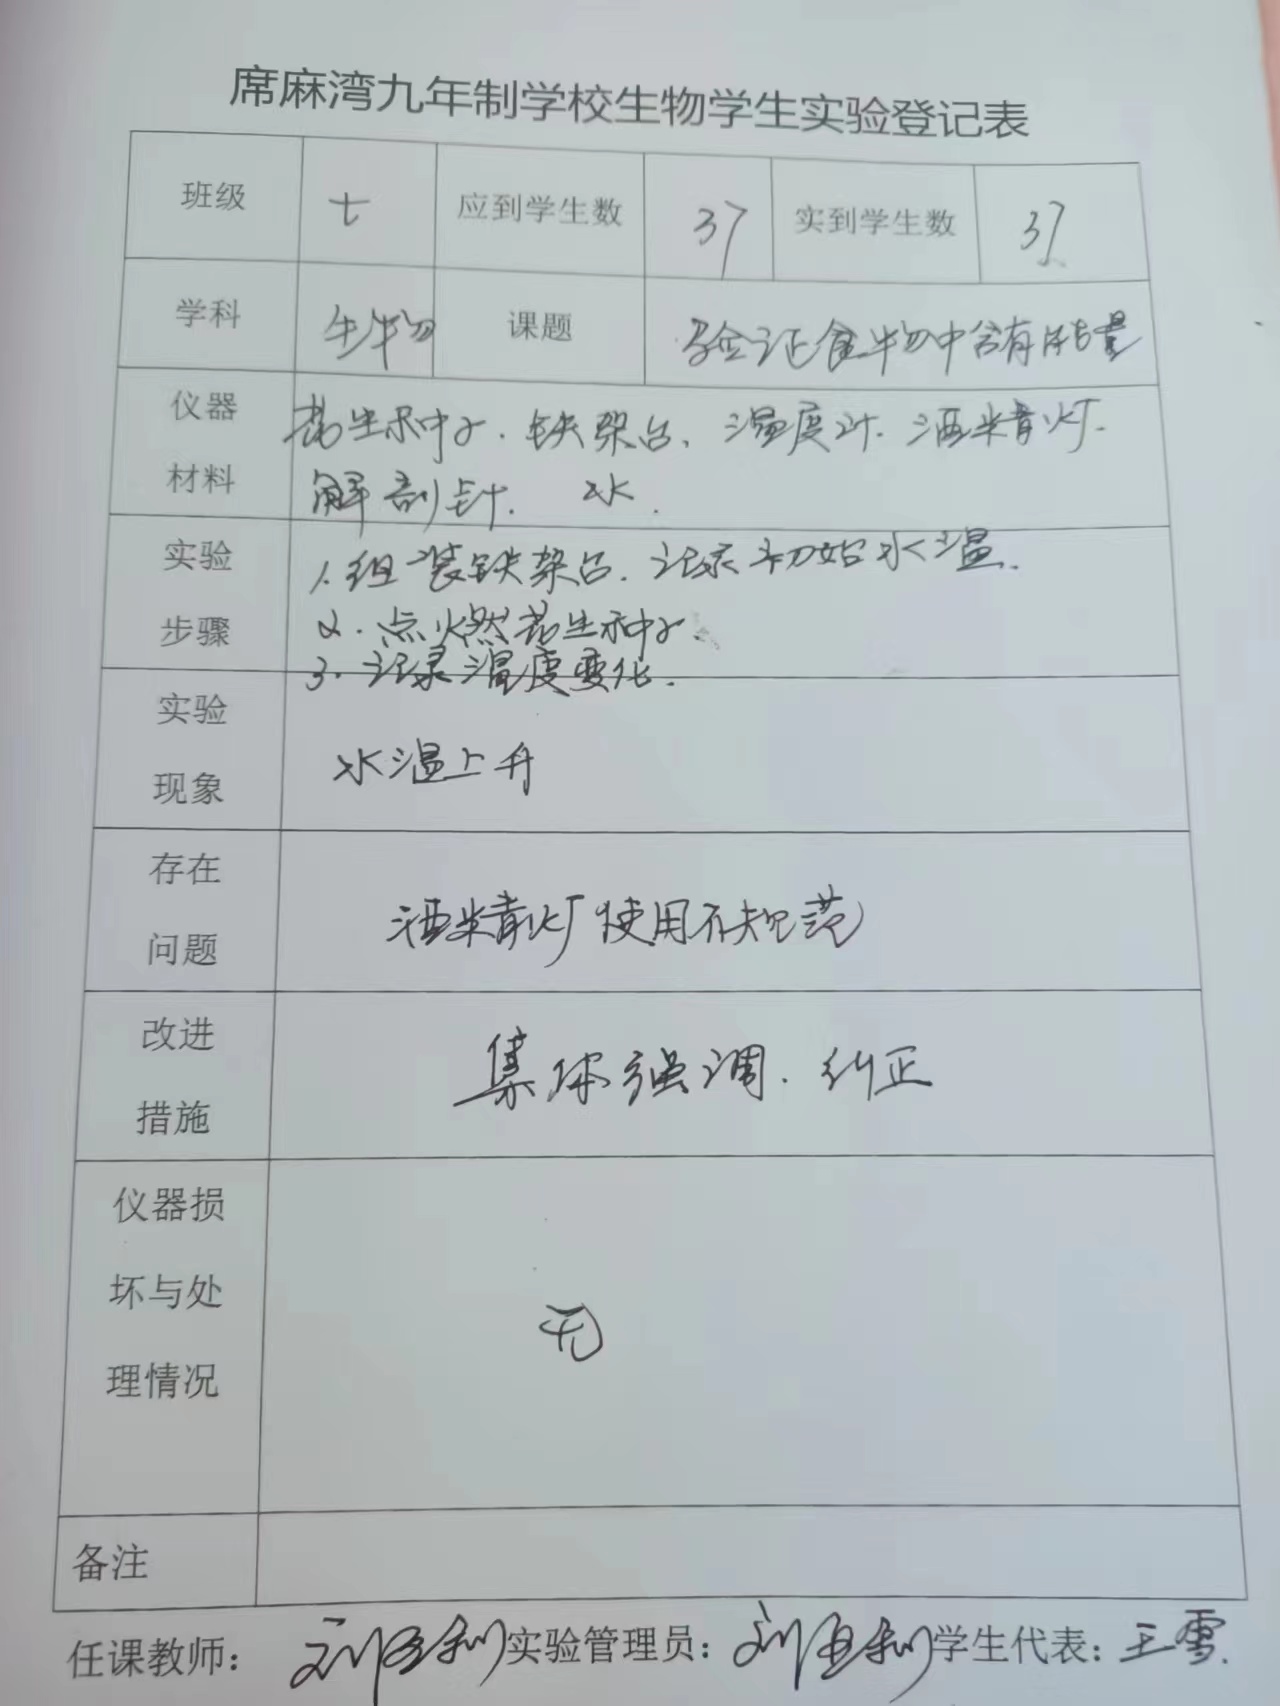 席麻湾九年制学校生物学生实验登记表
班级 七 应到学生数 37 实到学生数 37
学科 生物 课题 验证食物中含有能量
仪器 花生果种子、铁架台、温度计、酒精灯、
材料 解剖针、水.
实验 1、组装铁架台、记录初始水温.
步骤 2、点燃花生种子、
3、记录温度变化.
实验
现象 水温上升
存在
问题 酒精灯使用不规范
改进
措施 集体强调、纠正
仪器损
坏与处
理情况 无
备注
任课教师: 实验管理员: 学生代表: 王雪.